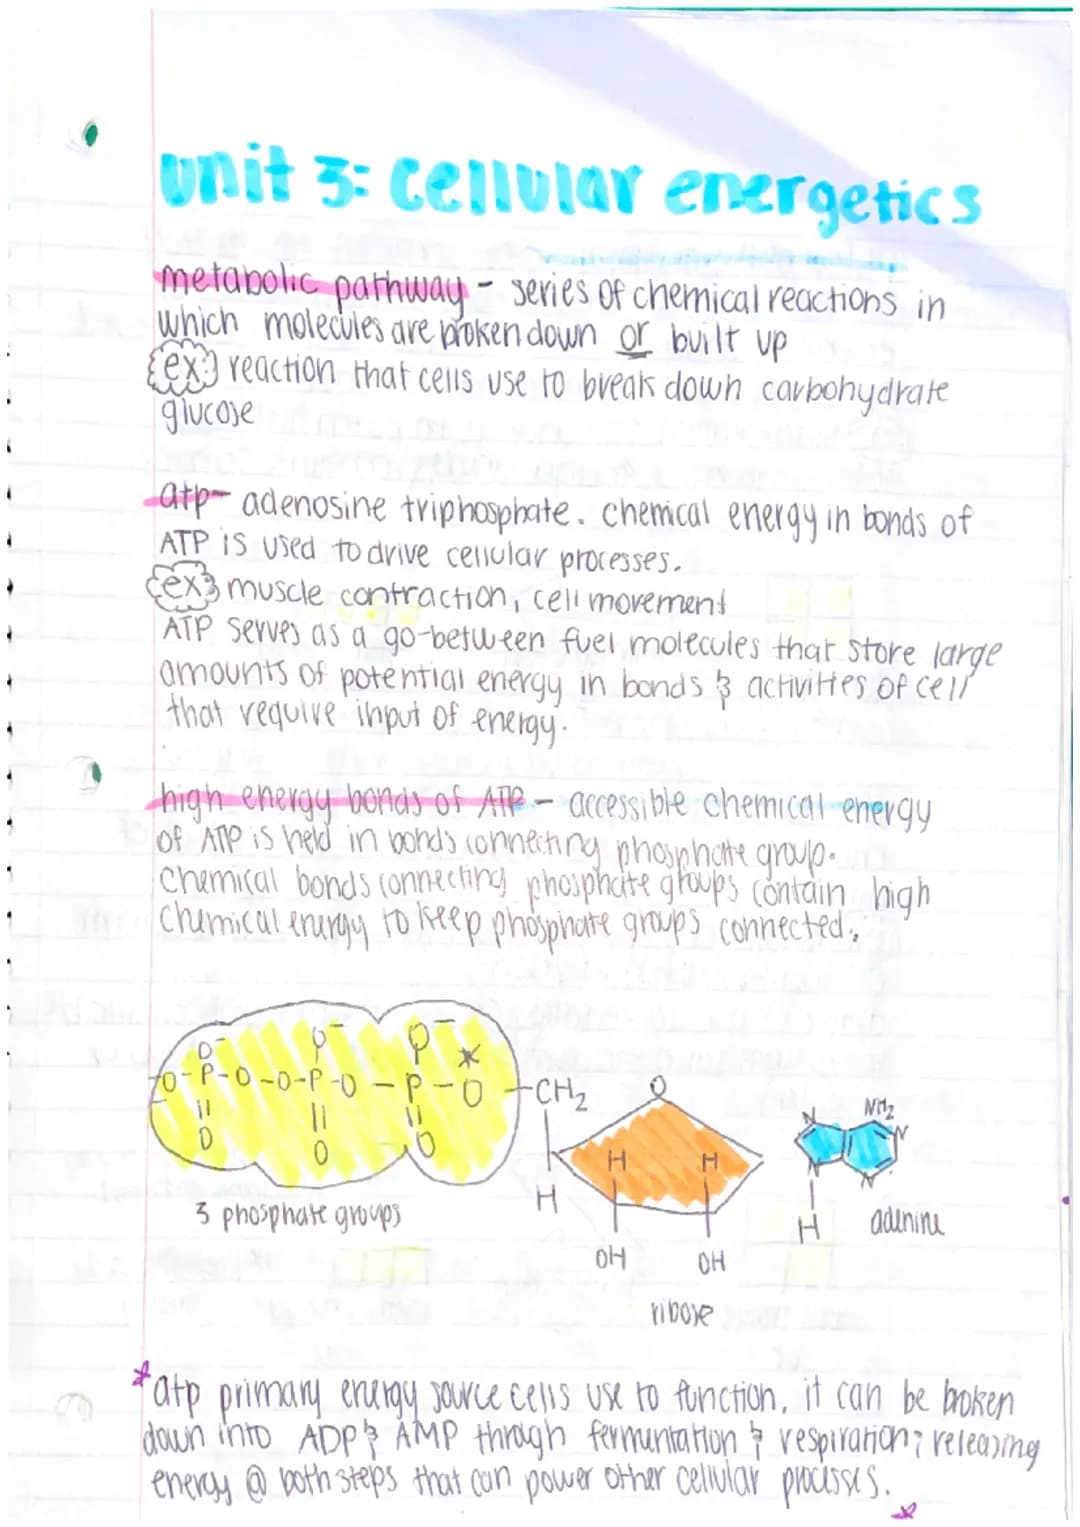 unit 3: cellular energetics
metabolic pathway - series of chemical reactions in
which molecules are broken down or built up
ex: reaction that cells use to break down carbohydrate
glucose
atp- adenosine triphosphate. chemical energy in bonds of
ATP is used to drive cellular processes.
ex: muscle contraction, cell movement
ATP serves as a go-between fuel molecules that store large
amounts of potential energy in bonds & activities of cell
that require input of energy.
high energy bonds of ATP - accessible chemical energy
of ATP is held in bonds connecting phosphate group.
chemical bonds connecting phosphate groups contain high
chemical energy to keep phosphate groups connected.
O⁻ O⁻ O⁻ *
O-P-O-O-P-O-P-O-CH₂ O N NH₂ N
O O O H H H N N
3 phosphate groups H adenine
OH OH
ribose
*atp primary energy source cells use to function. it can be broken
down into ADP & AMP through fermuntation & respiration; releasing
energy @ both steps that can power other cellular processes. *